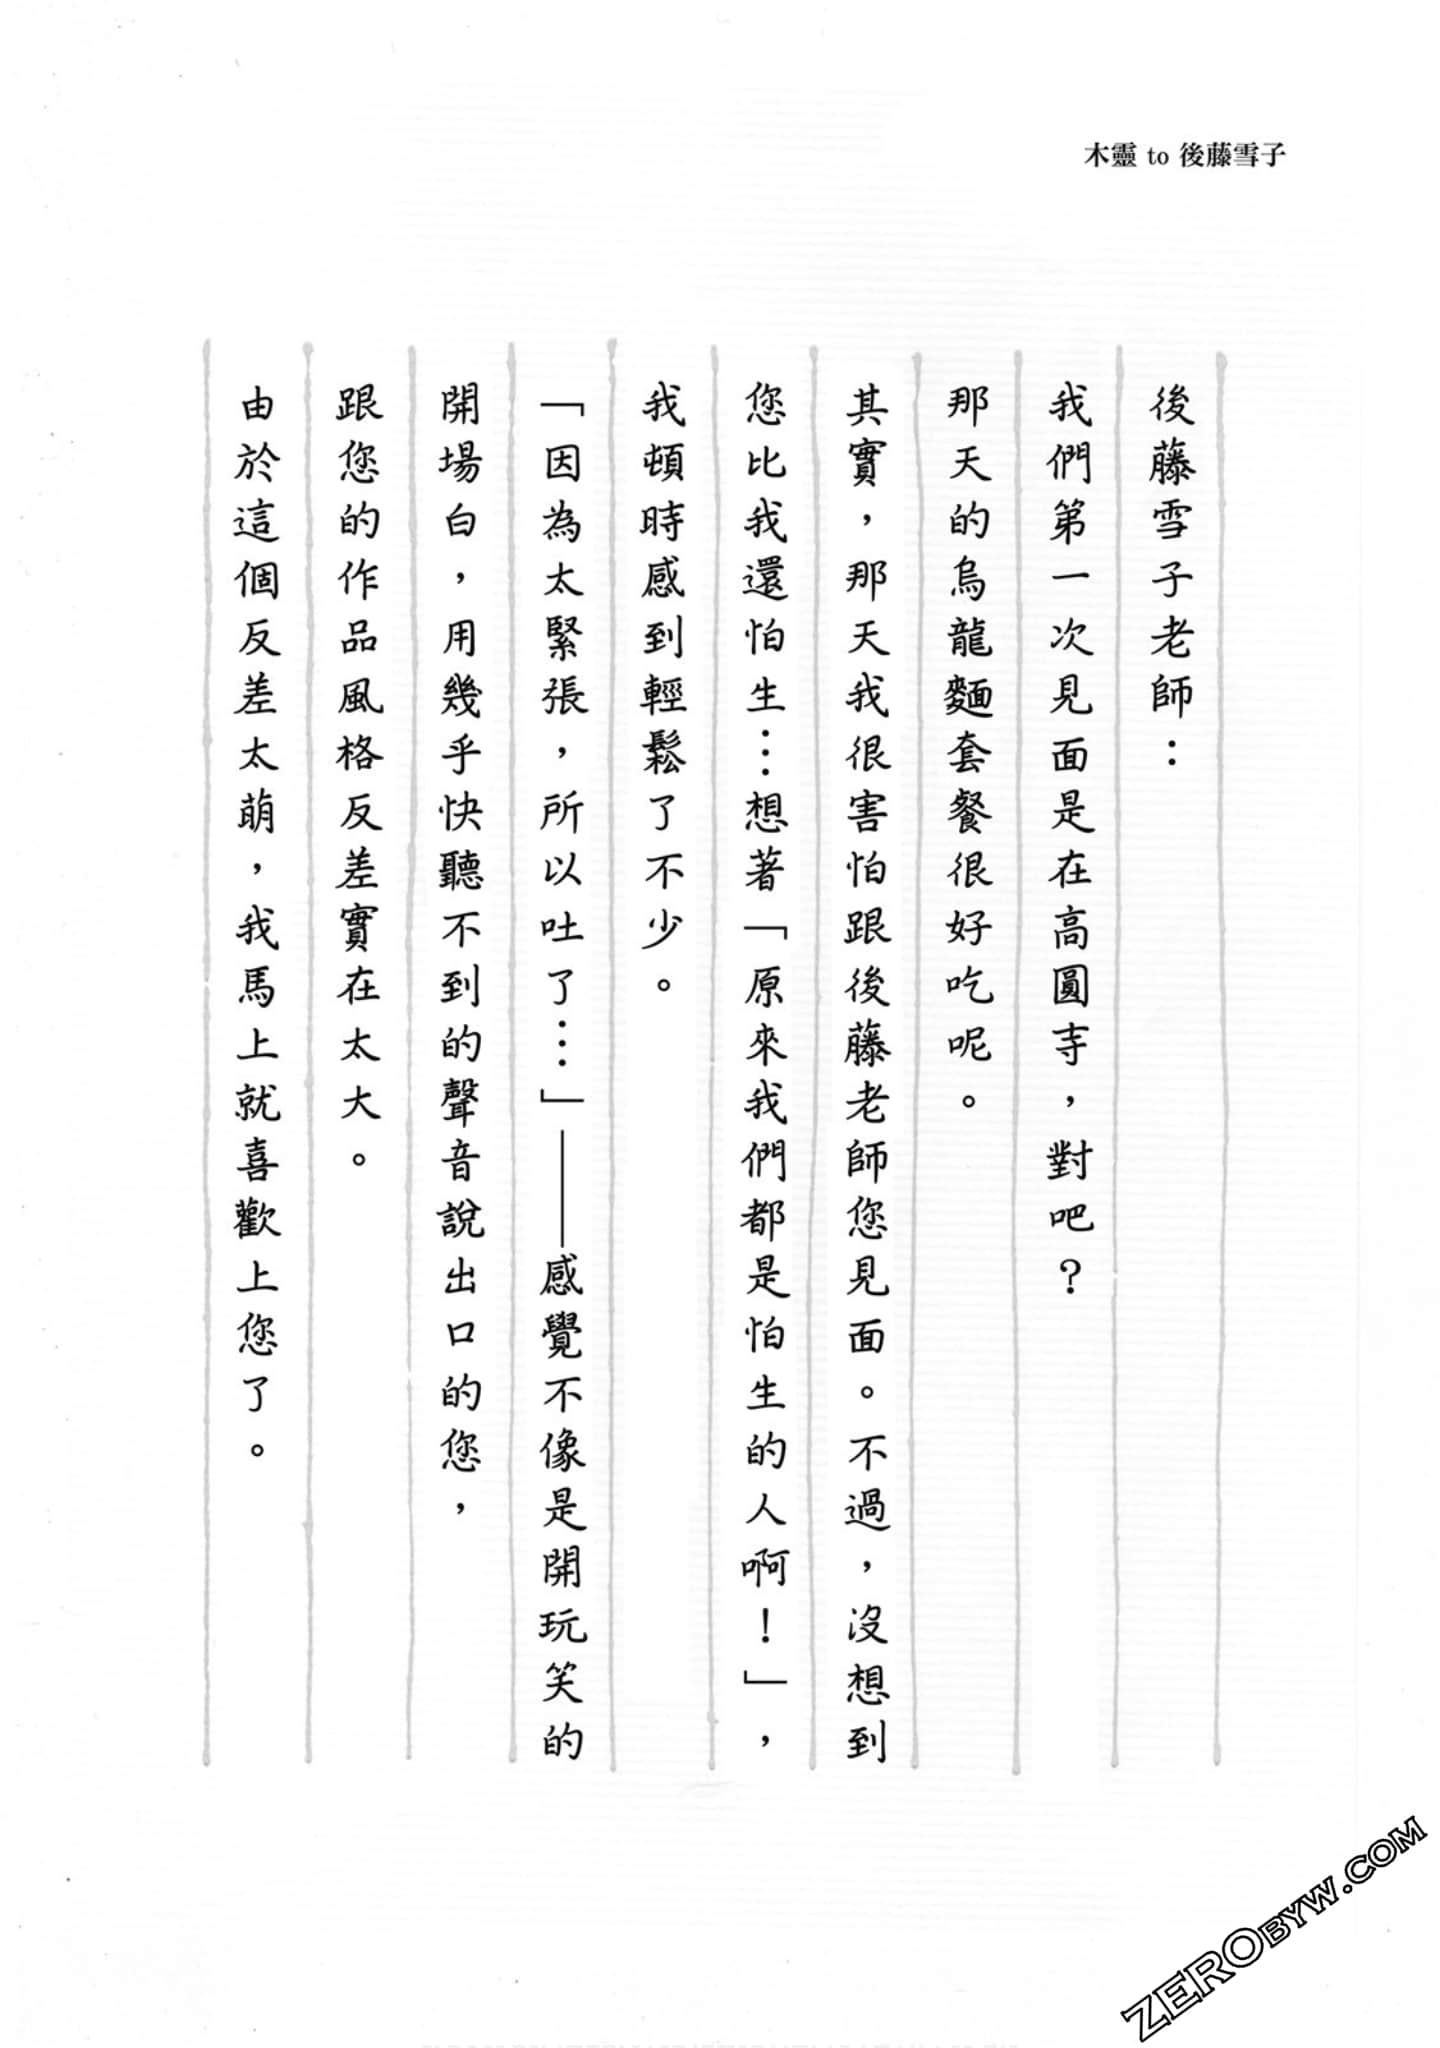 木靈 to 後藤雪子
後藤雪子老師：
我們第一次見面是在高圓寺，對吧？
那天的烏龍麵套餐很好吃呢。
其實，那天我很害怕跟後藤老師您見面。不過，沒想到
您比我還怕生…想著「原來我們都是怕生的人啊！」，
我頓時感到輕鬆了不少。
「因為太緊張，所以吐了…」——感覺不像是開玩笑的
開場白，用幾乎快聽不到的聲音說出口的您，
跟您的作品風格反差實在太大。
由於這個反差太萌，我馬上就喜歡上您了。
ZEROBYW.COM